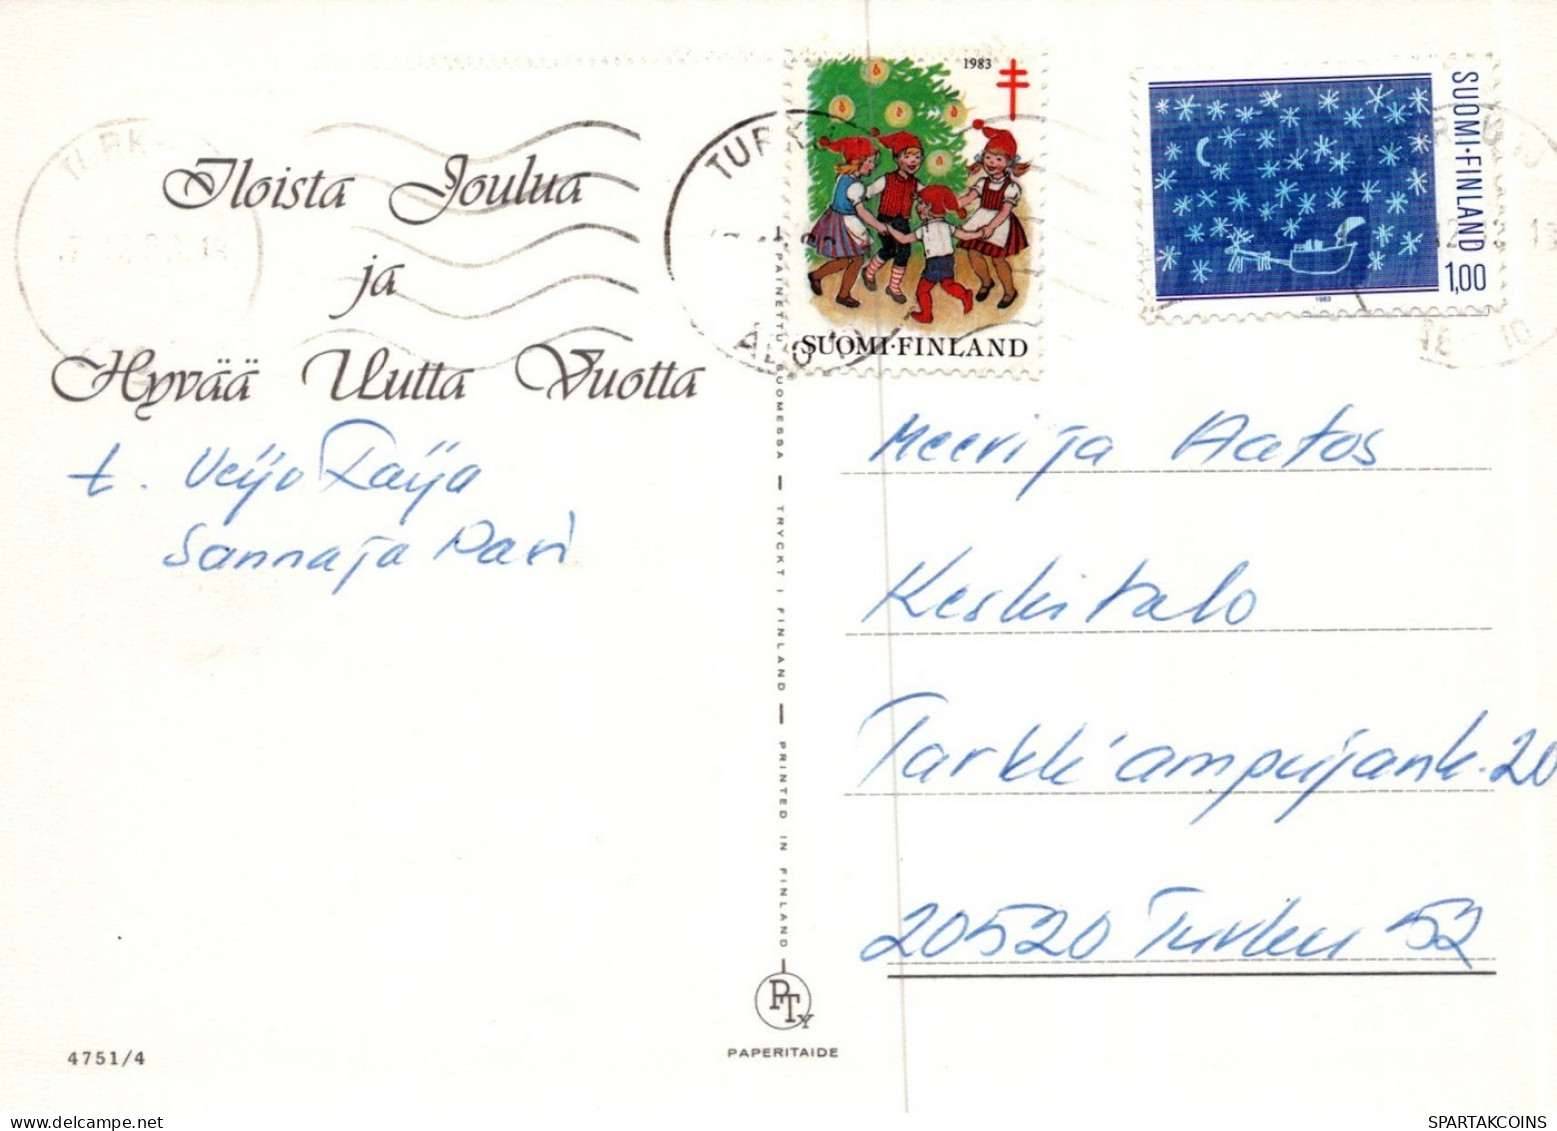 Iloista Joulua
ja
Hyvää Uutta Vuotta
t. Veijo Raija
Sanna ja Pasi
4751/4
TURKU
ÅBO
1983
SUOMI·FINLAND
SUOMI·FINLAND
1,00
1983
PAINETTU SUOMESSA — TRYCKT I FINLAND — PRINTED IN FINLAND
PTy
PAPERITAIDE
Meeri ja Aatos
Keskitalo
Tarkk'ampujank. 20
20520 Turku 52
SPARTAKCOINS